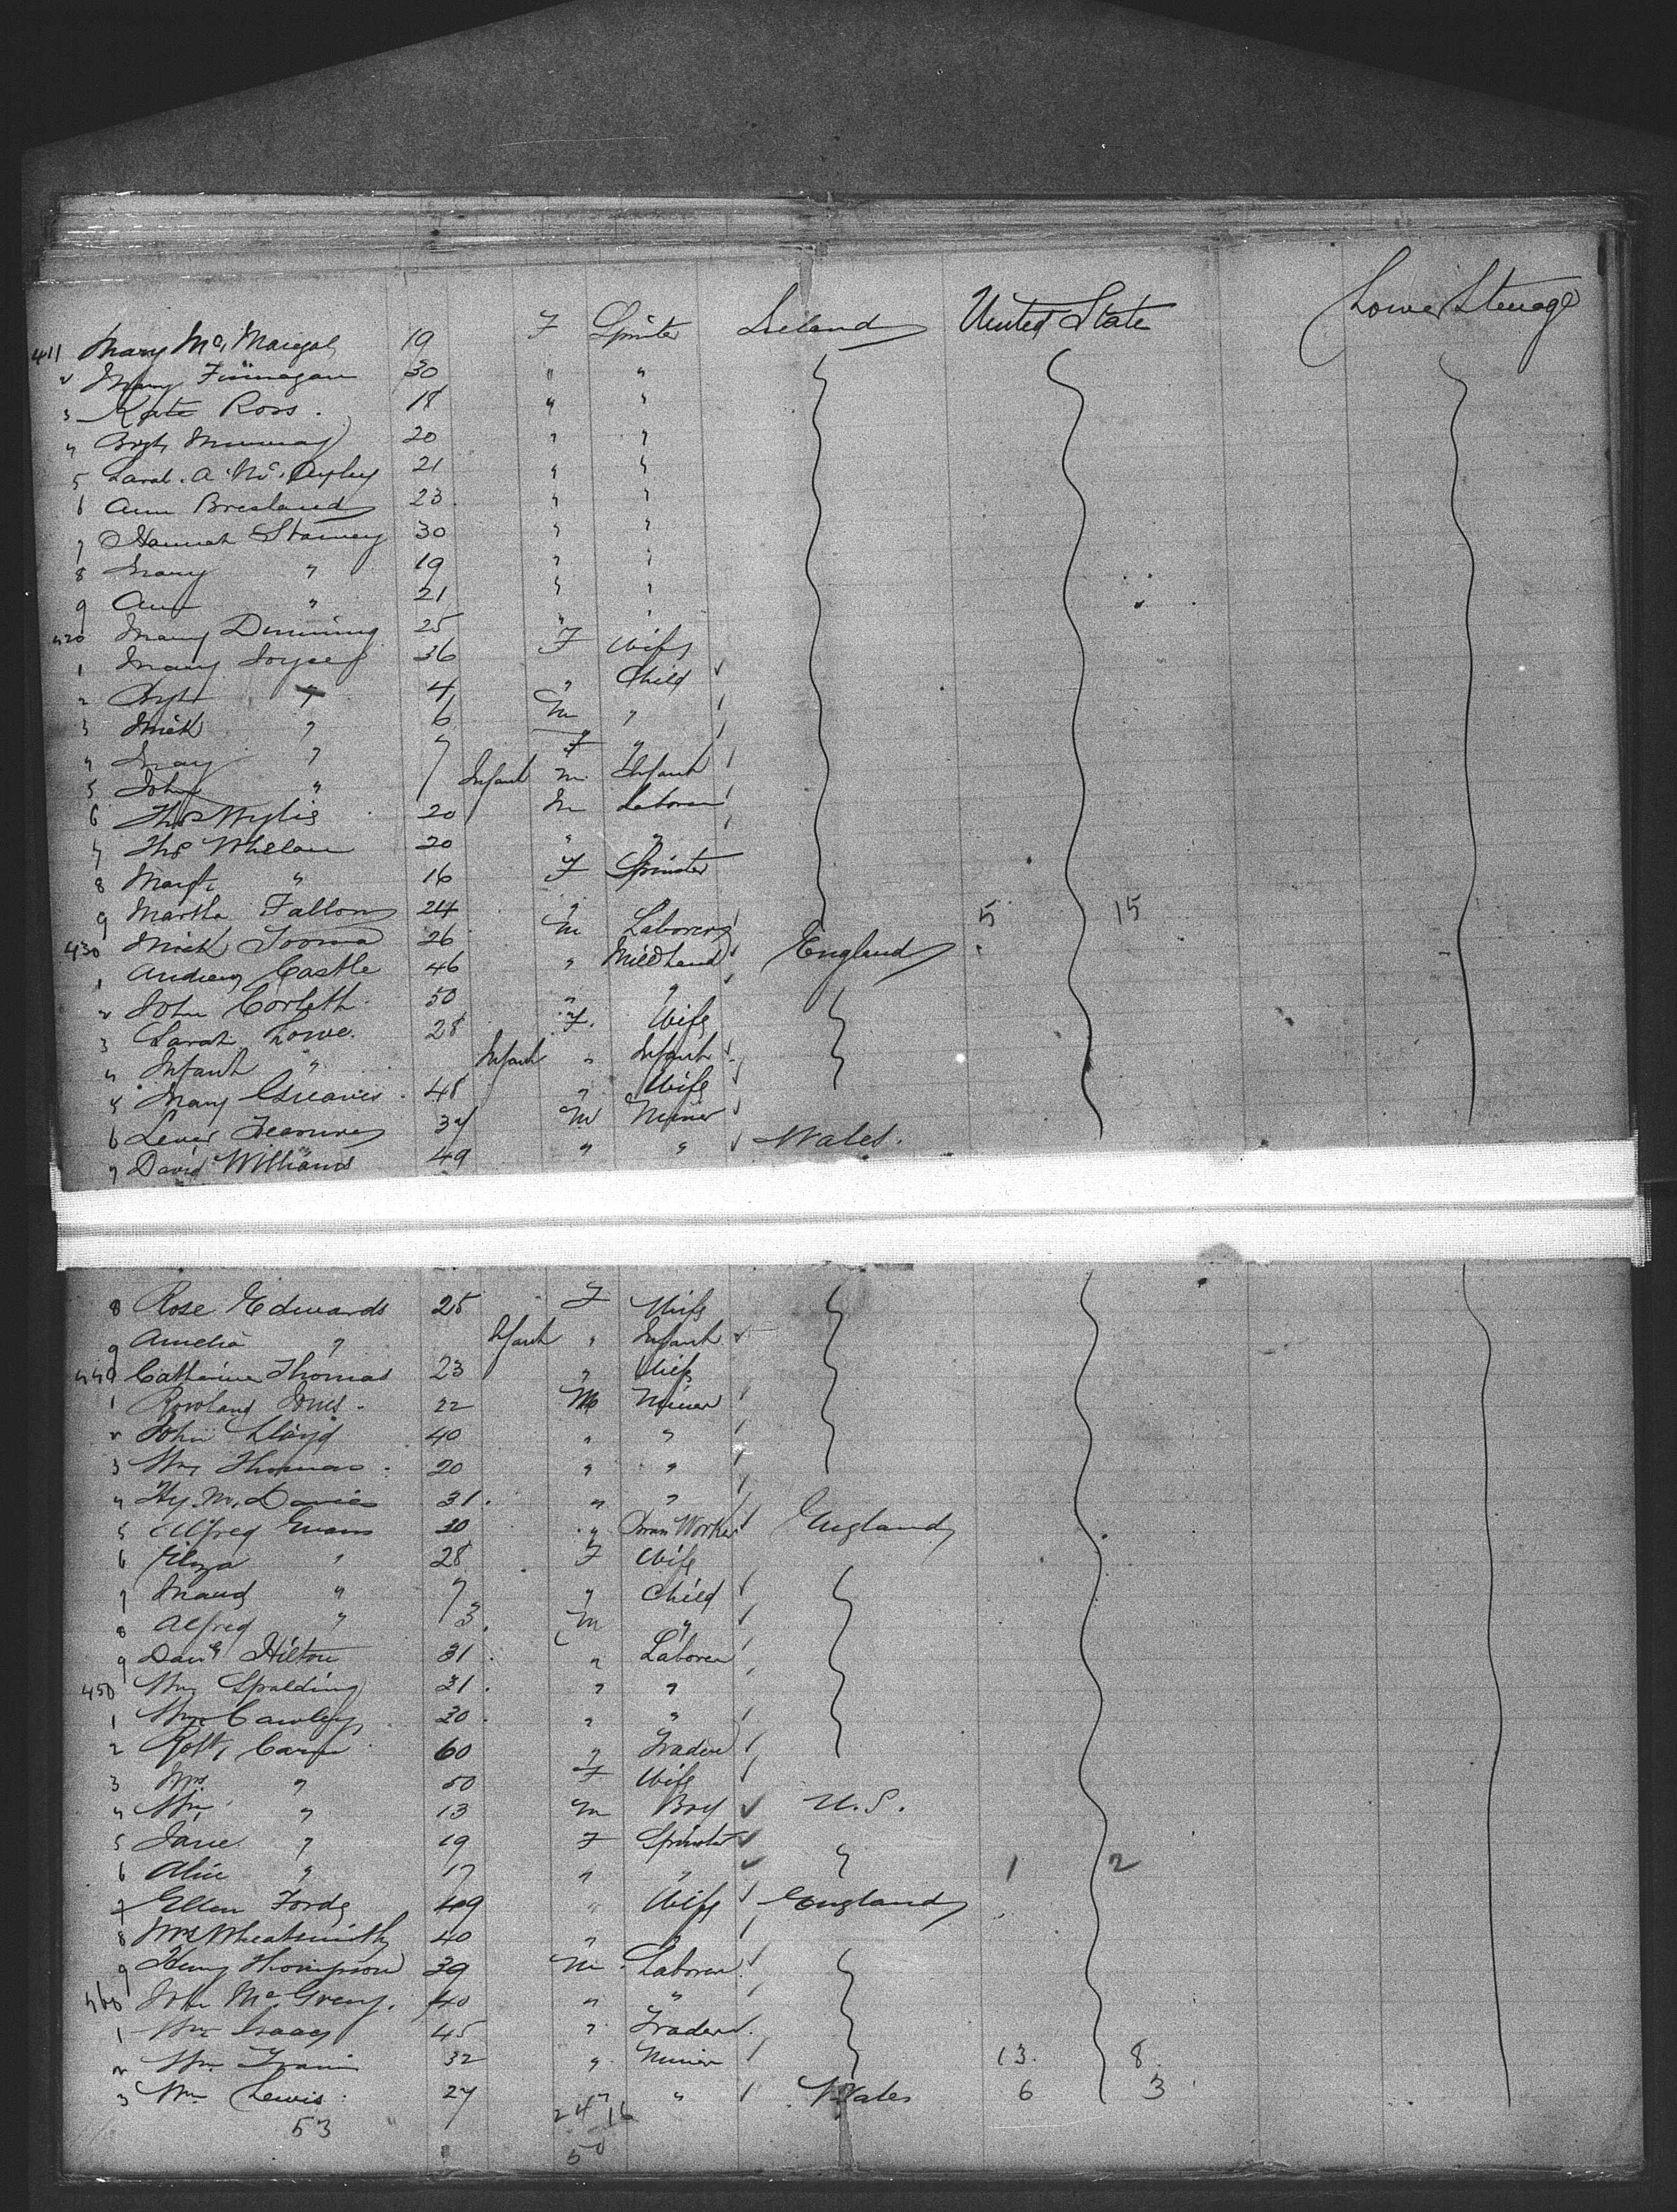 411 Mary Mc, Manigal 19 F Spinster Ireland United State Lower Steerage
2 Mary Finnagan 30 " "
3 Kate Ross. 18 " "
4 Bryt, Murray 20 " "
5 Sarah. A. Mc, 21 " "
6 Ann Bresland 23 " "
7 Hannah 30 " "
8 Mary " 19 " "
9 Ann " 21 " "
420 Mary Dinning 25 " "
1 Mary 36 F Wife
2 " 4 " Child
3 Mick " 6 M "
4 May " 7 F "
5 John " Infant M. Infant
6 Thos Wylie 20 M Laborer
7 Thos Whelan 20 " "
8 Margt, " 16 F Spinster
9 Martha Fallon 24 "
430 Mick 26 M Laborer 5 15
1 Andrew Castle 46 " Mill hand England
2 John Corleth 50 " "
3 Sarah Lowe. 28 F. Wife
4 Infant " Infant " Infant
5 Mary Greaves 48 " Wife
6 37 M Miner
7 David Williams 49 " " Wales.
8 Rose Edwards 25 F Wife
9 Amelia " Infant " Infant
440 Catherine Thomas 23 " Wife
1 Rowland Jones. 22 M Miner
2 John Lloyd 40 " "
3 Wm Thomas 20 " "
4 Hy. M. Davies 31. " "
5 Alfred Evans 30 " Worker England
6 Eliza " 28 F Wife
7 Maud " 7 " Child
8 Alfred " 3. M "
9 Danl Hilton 31 " Laborer
450 Wm Spalding 31. " "
1 Wm Cawley 30. " "
2 Robt, 60 " Trader
3 Mrs. " 50 F Wife
4 Wm, " 13 M Boy U.S.
5 Jane " 19 F Spinster "
6 Alice " 17 " " 1 2
7 Ellen Forde 49 " Wife England
8 Mrs Wheatsmith 40 " "
9 Henry Thompson 39 M Laborer
460 John Mc 40 " "
1 Wm Isaac 45 " Trader.
2 Wm 32 " Miner 13. 8.
3 Wm Lewis 27 " " Wales 6 3
53 24 16
50